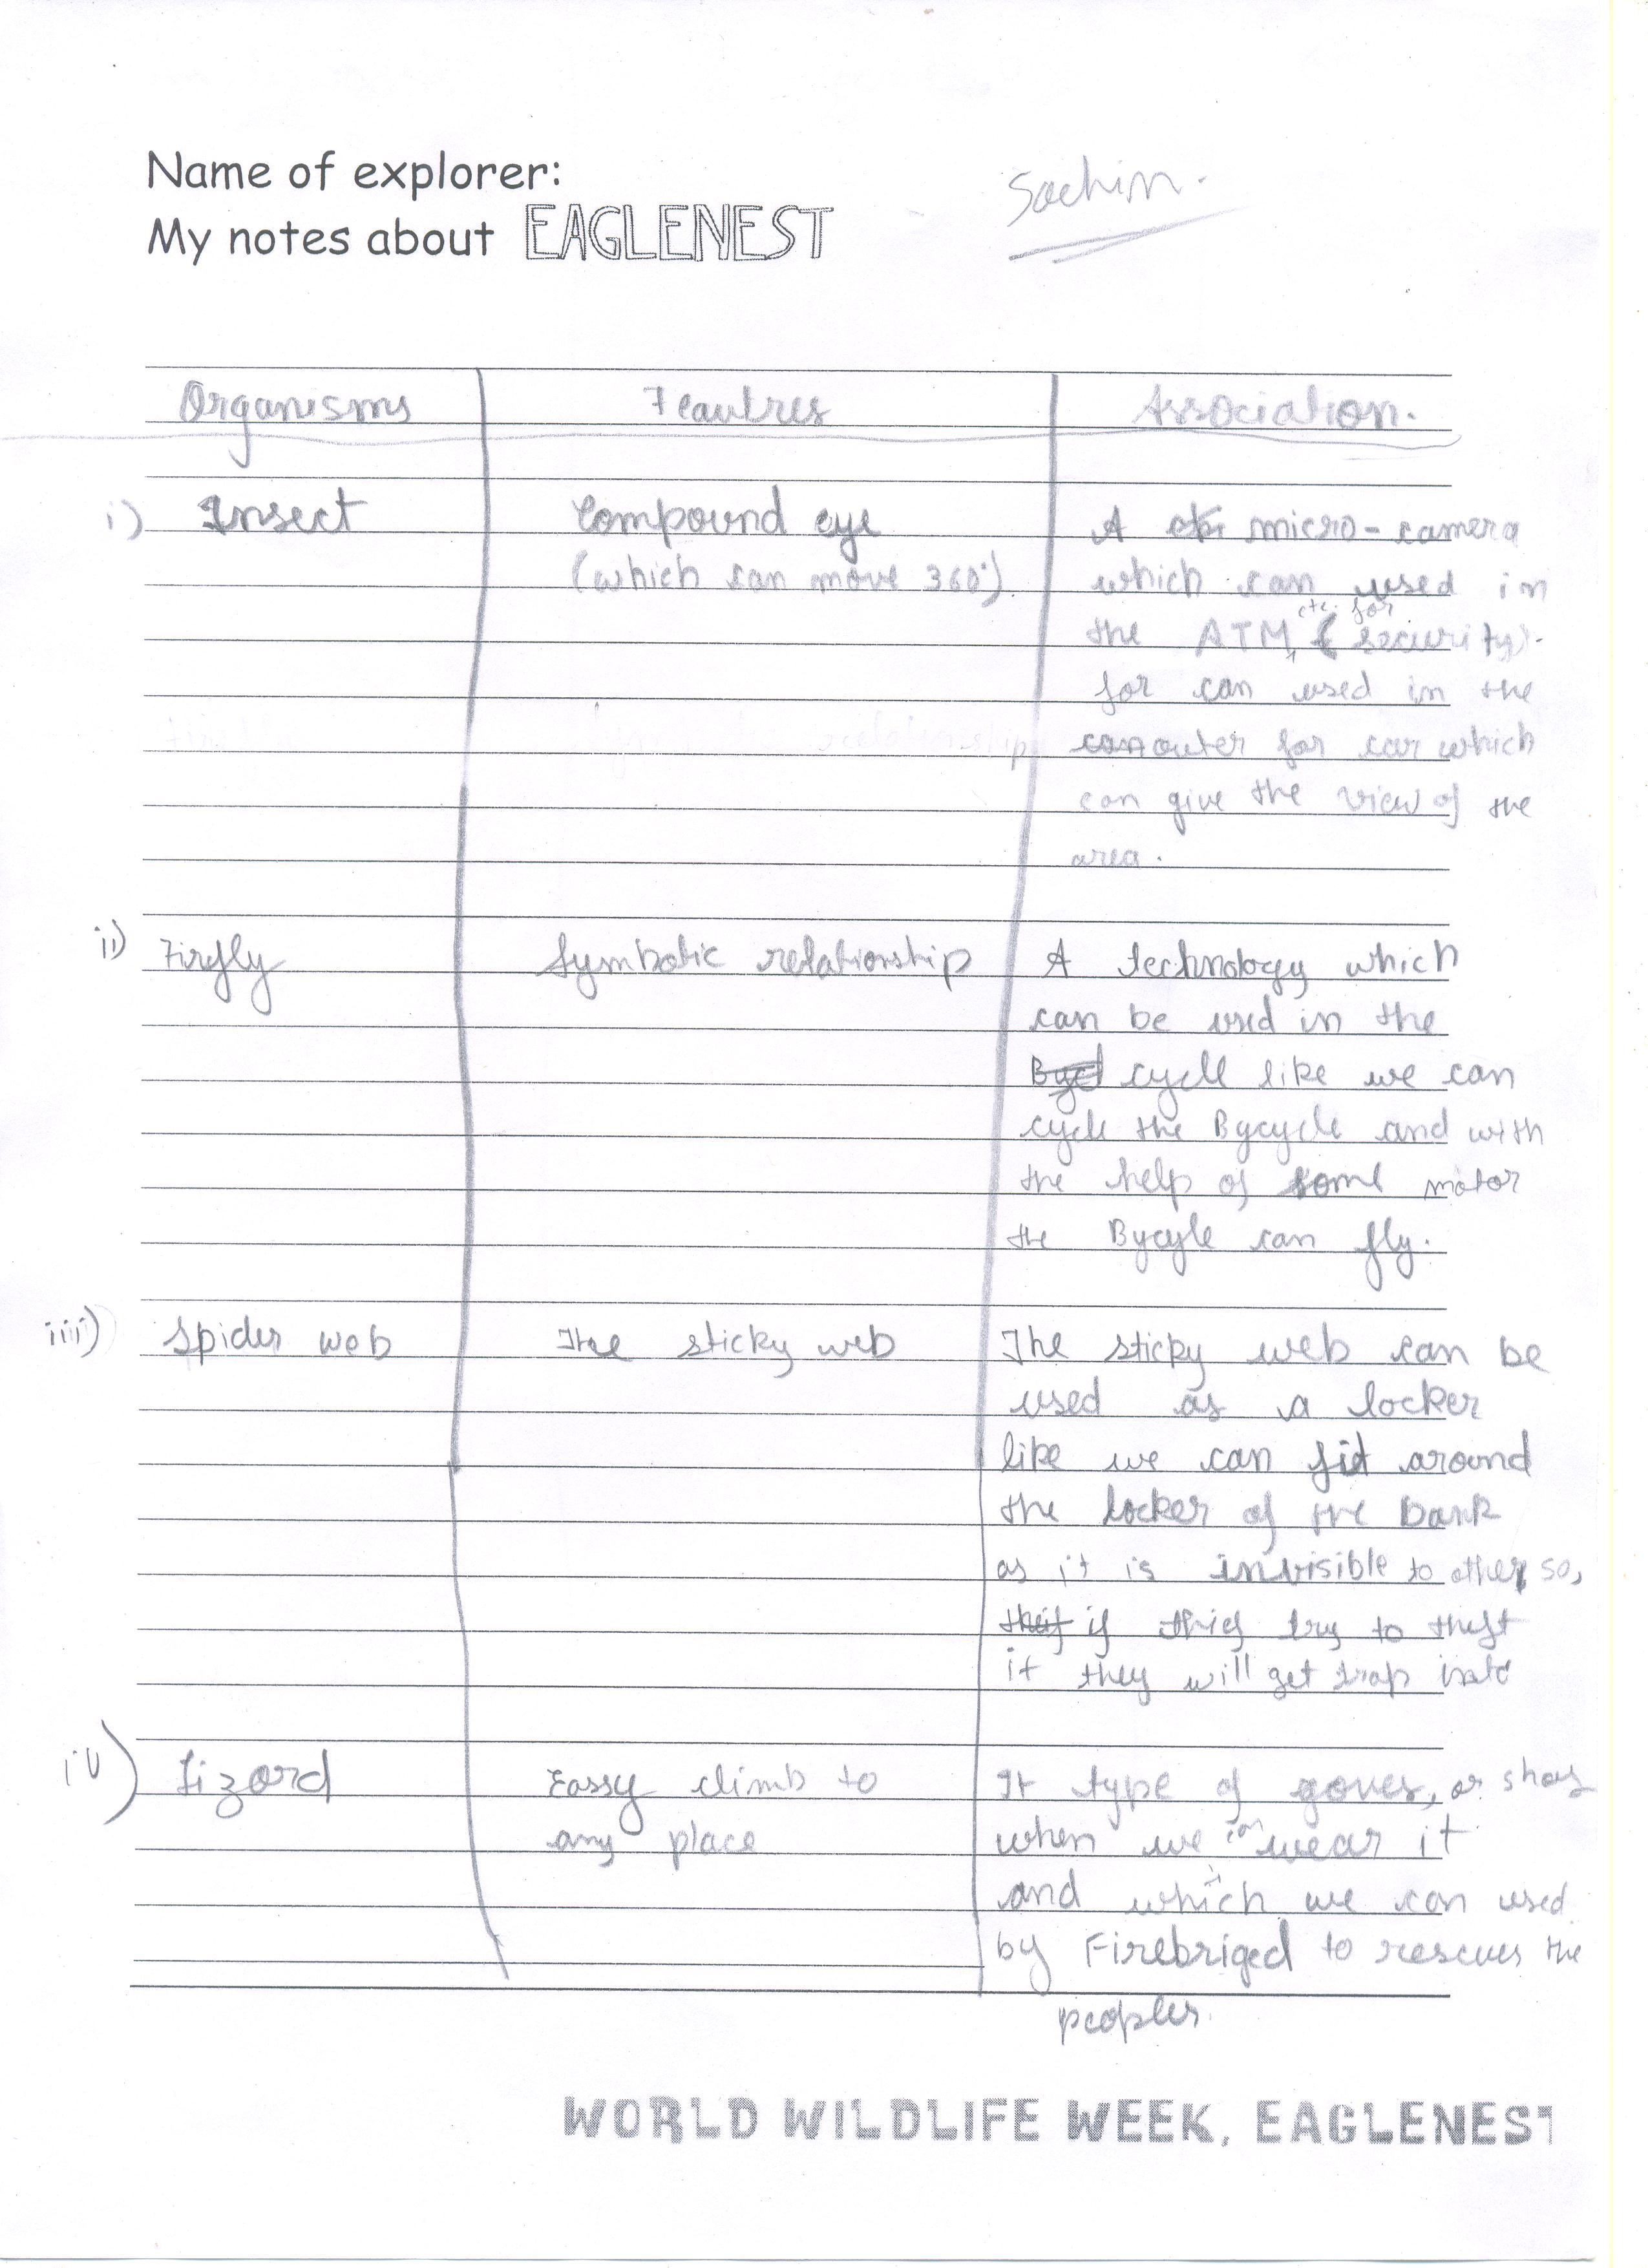 Name of explorer:
Sachin.
My notes about EAGLENEST
Organisms Feautres Association.
i) Insect Compound eye A micro-camera
(which can move 360°). which can used in
the ATM, etc. for security).
for can used in the
outer for car which
can give the view of the
area.
ii) Firefly Symbotic relationship A technology which
can be used in the
cycle like we can
cycle the Bycycle and with
the help of some motor
the Bycyle can fly.
iii) Spider web The sticky web The sticky web can be
used as a locker
like we can fit around
the locker of the bank
as it is invisible to other so,
if thief try to theft
it they will get trap
iv) Lizard Eassy climb to It type of goves, or
any place when we wear it
and which we can used
by Firebriged to rescues the
peoples.
WORLD WILDLIFE WEEK, EAGLENEST